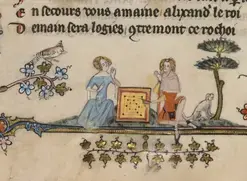 E n secours vous amaine alixand̾ le roi
D emain sera logies outremont ce rochoi